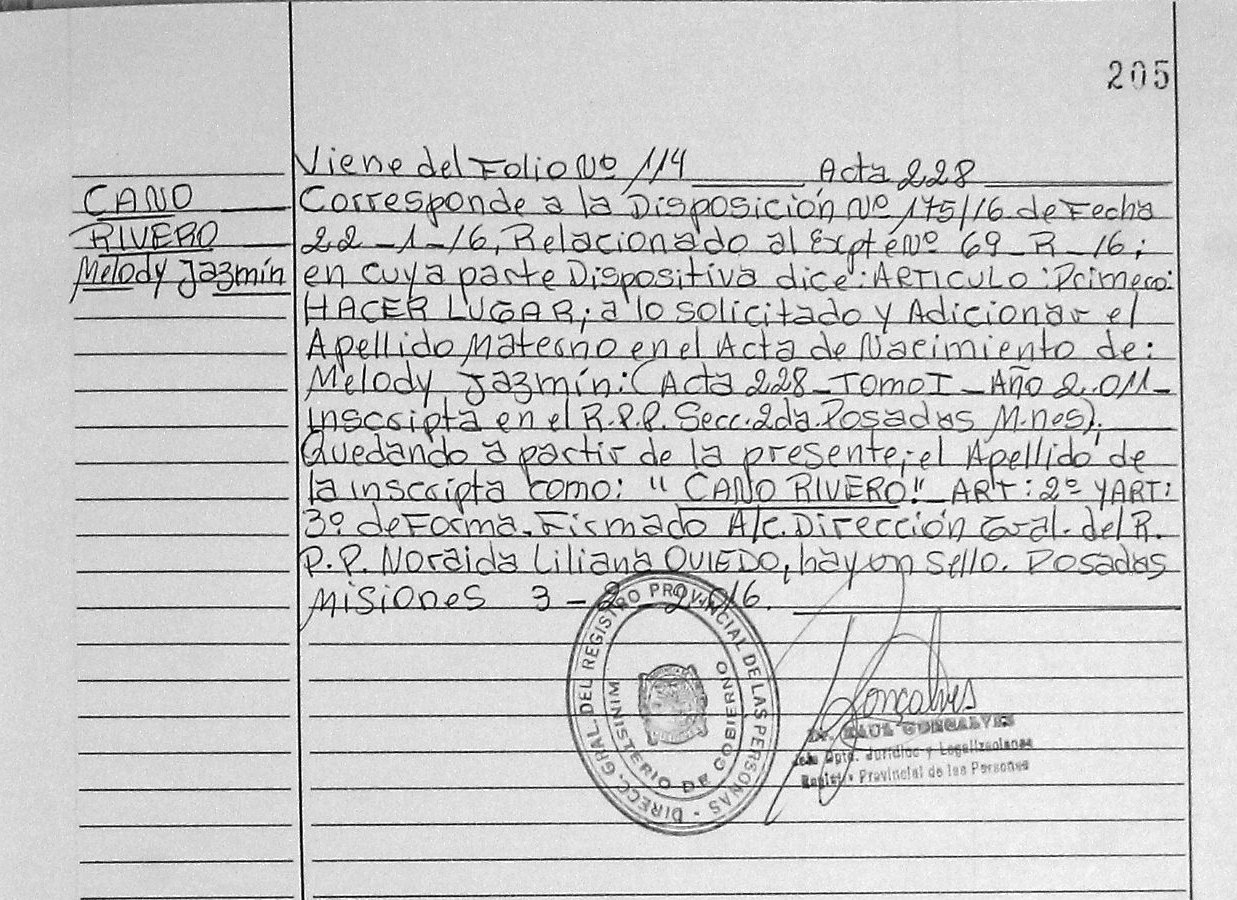 205
Viene del Folio Nº 114 Acta 228
CANO
RIVERO
Melody Jazmín
Corresponde a la Disposición Nº 175/16 de Fecha
22-1-16, Relacionado al Expte Nº 69_R_16;
en cuya parte Dispositiva dice: ARTICULO: Primero:
HACER LUGAR; a lo solicitado y Adicionar el
Apellido Materno en el Acta de Nacimiento de:
Melody Jazmín: (Acta 228_Tomo I_Año 2.011_
inscripta en el R.P.P. Secc. 2da. Posadas M.nes);
Quedando a partir de la presente; el Apellido de
la inscripta como: "CANO RIVERO"_ART: 2º Y ART:
3º de Forma. Firmado A/c. Dirección Gral. del R.
P.P. Noraida Liliana OVIEDO, hay un sello. Posadas
Misiones 3-2-2016.
DIRECC. GRAL. DEL REGISTRO PROVINCIAL DE LAS PERSONAS
MINISTERIO DE GOBIERNO
Gonçalves
Dr. RAUL GONSALVES
Jefe Dpto. Jurídico y Legalizaciones
Registro Provincial de las Personas